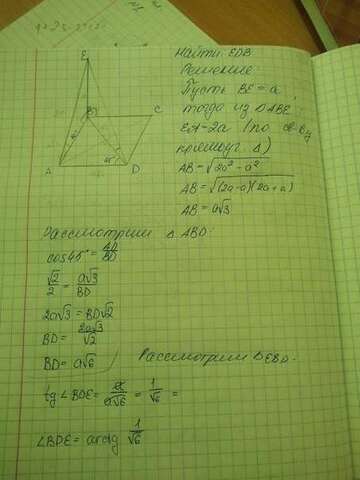 E
B
C
A
D
45°
Найти: EDB
Решение
Пусть BE = a
тогда из ΔABE:
EA=2a (по св-ву
прямоуг. Δ)
AB = √2a² - a²
AB = √(2a-a)(2a+a)
AB = a√3
Рассмотрим Δ ABD:
cos45° = AD/BD
√2/2 = a√3/BD
2a√3 = BD√2
BD = 2a√3/√2
BD = a√6
Рассмотрим ΔEBD:
tg ∠BDE = a/a√6 = 1/√6 =
∠BDE = arctg 1/√6